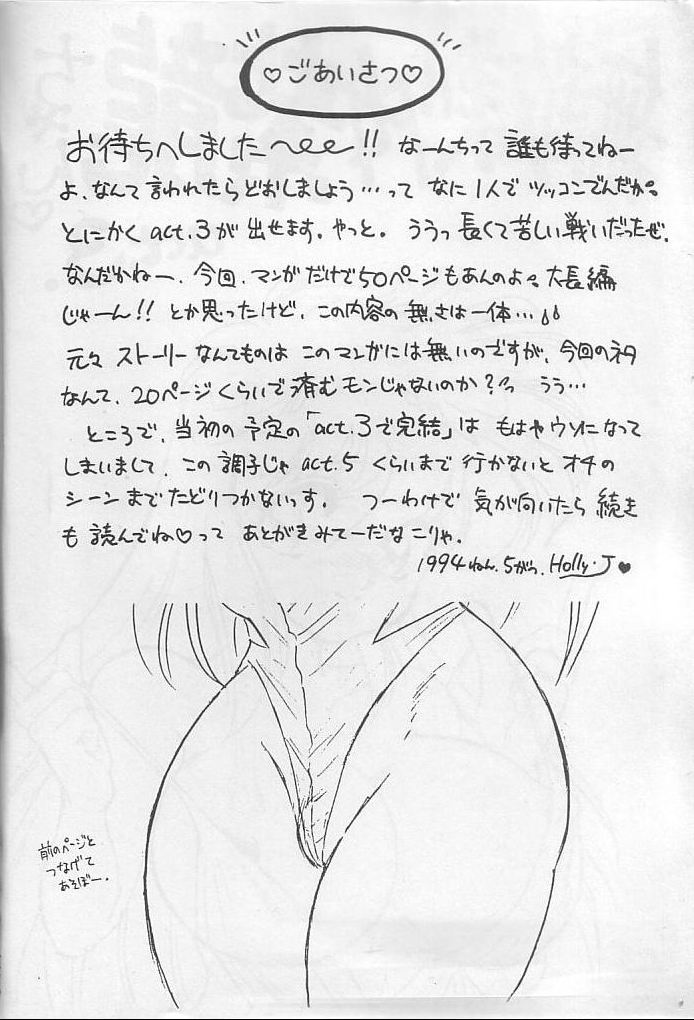 ♡ごあいさつ♡
お待たへしました〜!! なーんちって 誰も待ってねー
よ、なんて言われたらどおしましょう…って なに1人で ツッコンでんだか。
とにかく act.3が 出せます。やっと。ううっ 長くて苦しい戦いだったぜ。
なんだかねー、今回、マンガだけで50ページもあんのよ。大長編
じゃーん!! とか思ったけど、この内容の無さは一体…
元々 ストーリーなんてものは このマンガには無いのですが、今回のネタ
なんて、20ページくらいで済むモンじゃないのか? うう…
ところで、当初の予定の「act.3で完結」は もはやウソになって
しまいまして、この調子じゃ act.5 くらいまで行かないと オチの
シーンまでたどりつかないっす。 つーわけで 気が向いたら続き
も 読んでね♡って あとがきみてーだなこりゃ。
1994ねん.5がつ. Holly・J♥
前のページと
つなげて
あそぼー.